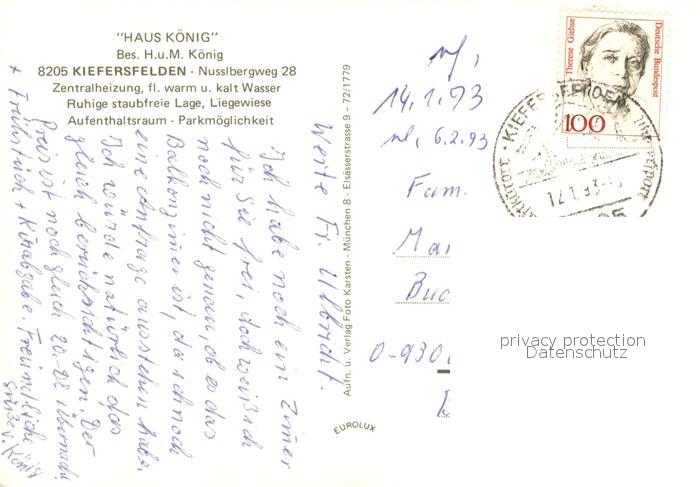 "HAUS KÖNIG"
Bes. H.u.M. König
8205 KIEFERSFELDEN - Nusslbergweg 28
Zentralheizung, fl. warm u. kalt Wasser
Ruhige staubfreie Lage, Liegewiese
Aufenthaltsraum - Parkmöglichkeit
Werte Fr. Ulbricht.
Ich habe noch ein Zimmer
für Sie frei, doch weiß ich
noch nicht genau, ob es das
Balkonzimer ist, da ich noch
eine Anfrage ausstehen habe.
Ich würde natürlich das
gleich berücksichtigen. Der
Preis ist noch gleich 20.-
+ Frühstück + Kurabgabe. Freundliche
Grüße v. König
Aufn. u. Verlag Foto Karsten - München 8 - Elsässerstrasse 9 - 72/1779
EUROLUX
14.1.93
6.2.93
Fam.
Ma
Buc
0-930
Therese Giehse
Deutsche Bundespost
100
KIEFERSFELDEN
privacy protection
Datenschutz